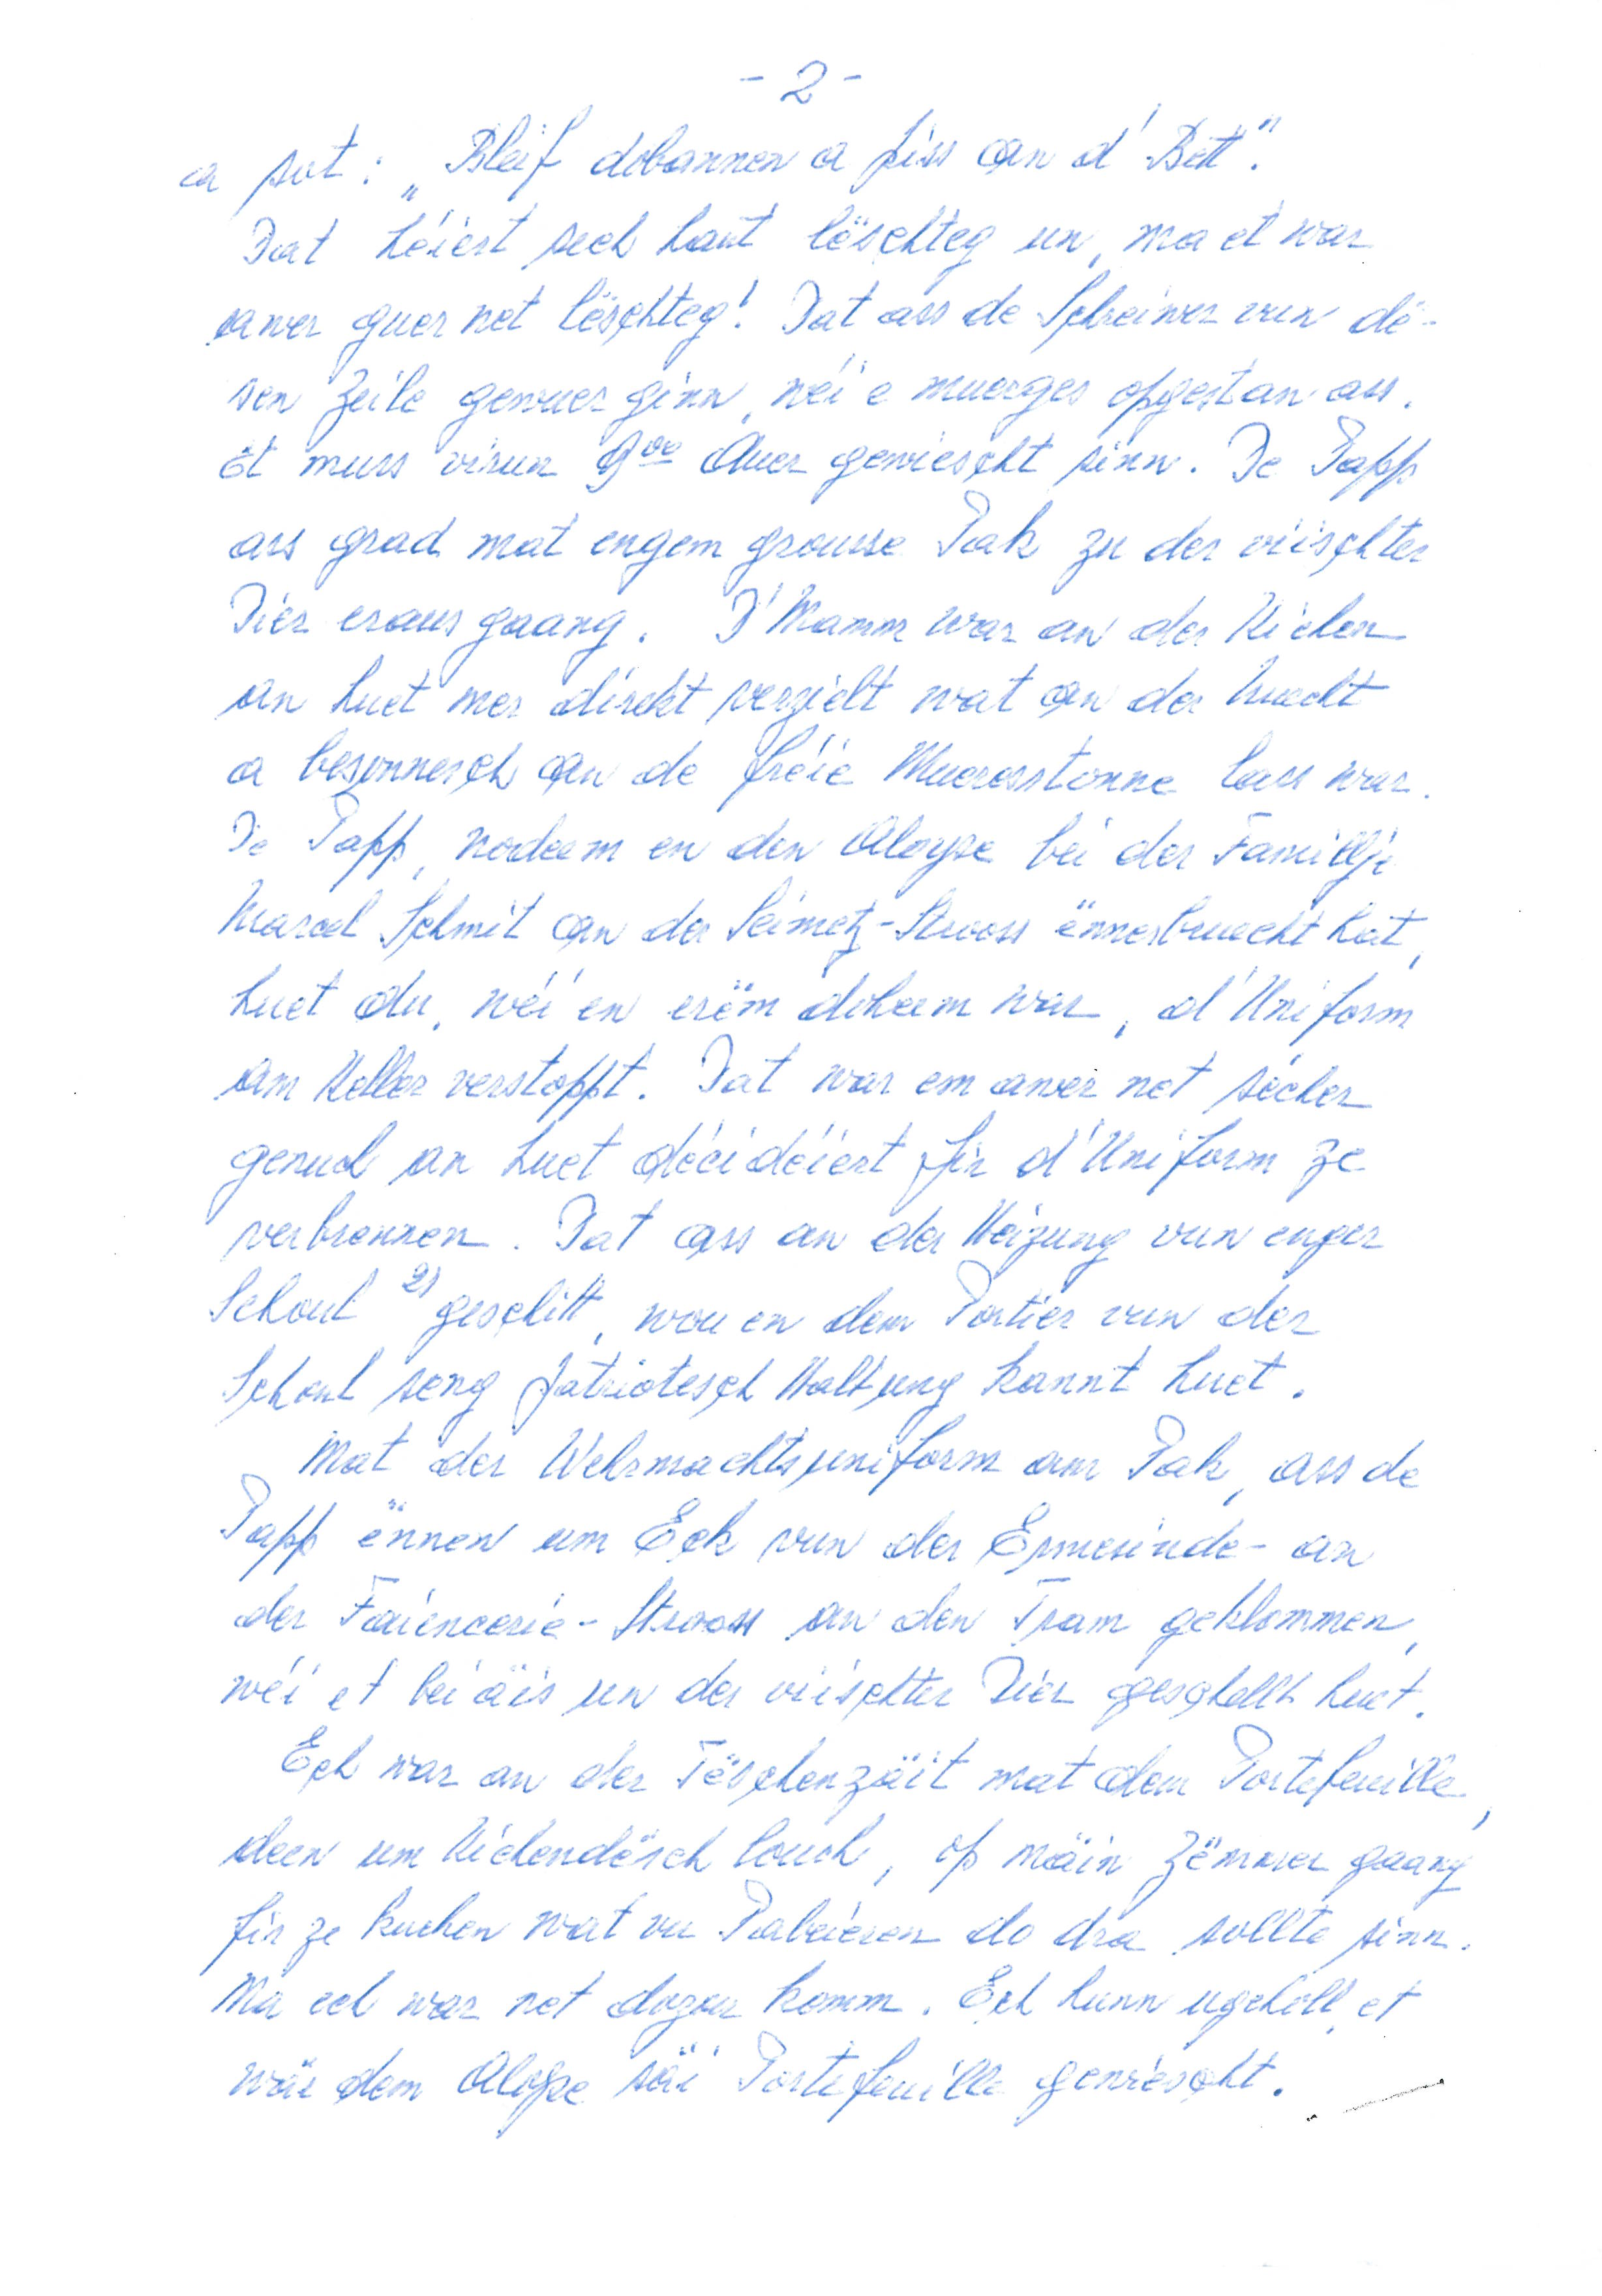 - 2 -
a sot: „Bleif dobannen a piss an d'Bett".
Dat héiert sech haut lëschteg un, ma et war
awer guer net lëschteg! Dat ass de Schreiwer vun dë-
sen Zeile gewuer ginn, wéi e muerges opgestan ass.
Et muss virun 9⁰⁰ Auer gewiescht sinn. De Papp
ass grad mat engem grousse Pak zu der viischter
Dier eraus gaang. D'Mamm war an der Kichen
an huet mer direkt verzielt wat an der Nuecht
a besonnesch an de fréie Mueresstonne lass war.
De Papp, nodeem en den Aloyse bei der Famillje
Marcel Schmit an der Seimetz-Strooss ënnerbruecht hat,
huet du, wéi en erëm doheem war, d'Uniform
am Keller verstoppt. Dat war em awer net sécher
genuch an huet décidéiert fir d'Uniform ze
verbrennen. Dat ass an der Heizung vun enger
Schoul 2) geschitt, wou en dem Portier vun der
Schoul seng patriotesch Haltung kannt huet.
Mat der Wehrmachtsuniform am Pak, ass de
Papp ënnen um Eck vun der Ermesinde- an
der Faiencerie-Strooss an den Tram geklommen,
wéi et bei äis un der viischter Dier geschellt huet.
Ech war an der Tëschenzäit mat dem Portefeuille,
deen um Kichendësch louch, op mäin Zëmmer gaang
fir ze kucken wat vu Pabeieren do dra sollte sinn.
Ma ech war net dozou komm. Ech hunn ugeholl, et
wär dem Aloyse säi Portefeuille gewiescht.